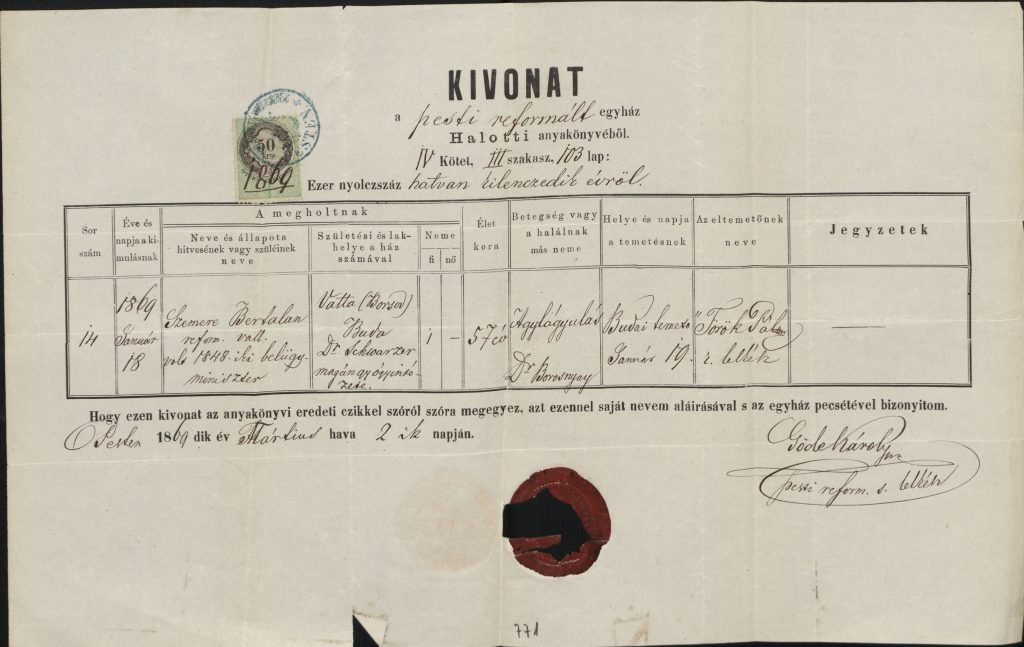 KIVONAT
a pesti reformált egyház
Halotti anyakönyvéből.
IV Kötet, III szakasz, 103 lap:
Ezer nyolczszáz hatvan kilenczedik évről.
50
1869
PESTEN
Sor szám
Éve és napja a kimulásnak
A megholtnak
Neve és állapota hitvesének vagy szüleinek neve
Születési és lakhelye a ház számával
Neme
fi
nő
Élet kora
Betegség vagy a halálnak más neme
Helye és napja a temetésnek
Az eltemetőnek neve
Jegyzetek
14
1869
Január
18
Szemere Bertalan
reform. vall.
volt 1848-iki belügy-
miniszter
Vatta (Borsod)
Buda
Dr Schwarzer
magán gyógyinté-
zete.
1
–
57 év
Agylágyulás
Dr Borosnyay
Budai temető
Január 19.
Török Pál
r. lelkész
Hogy ezen kivonat az anyakönyvi eredeti czikkel szóról szóra megegyez, azt ezennel saját nevem aláirásával s az egyház pecsétével bizonyitom.
Pesten 1869 dik év Mártius hava 2 ik napján.
Göde Károly
pesti reform. s. lelkész
771